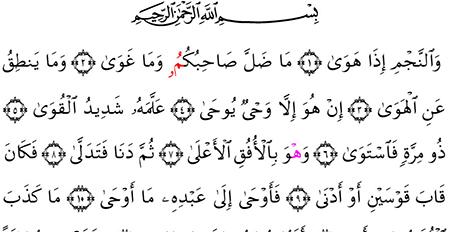 بِسْمِ اللَّهِ الرَّحْمَٰنِ الرَّحِيمِ
وَالنَّجْمِ إِذَا هَوَىٰ ﴿١﴾ مَا ضَلَّ صَاحِبُكُمُۥ وَمَا غَوَىٰ ﴿٢﴾ وَمَا يَنطِقُ
عَنِ الْهَوَىٰ ﴿٣﴾ إِنْ هُوَ إِلَّا وَحْىٌ يُوحَىٰ ﴿٤﴾ عَلَّمَهُۥ شَدِيدُ الْقُوَىٰ ﴿٥﴾
ذُو مِرَّةٍ فَاسْتَوَىٰ ﴿٦﴾ وَهْوَ بِالْأُفُقِ الْأَعْلَىٰ ﴿٧﴾ ثُمَّ دَنَا فَتَدَلَّىٰ ﴿٨﴾ فَكَانَ
قَابَ قَوْسَيْنِ أَوْ أَدْنَىٰ ﴿٩﴾ فَأَوْحَىٰ إِلَىٰ عَبْدِهِۦ مَا أَوْحَىٰ ﴿١٠﴾ مَا كَذَبَ